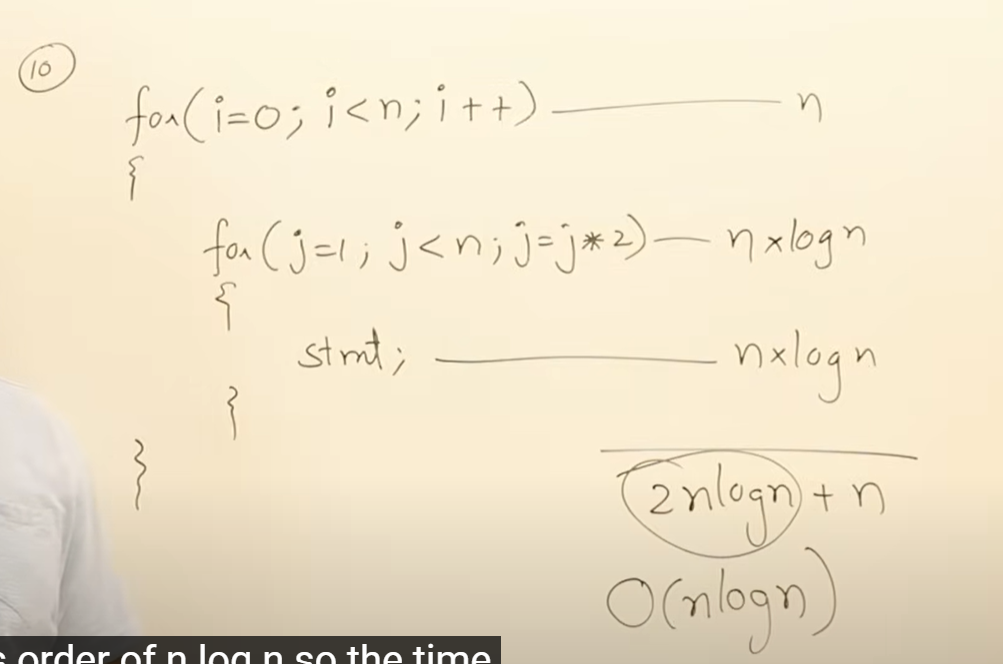 10
for(i=0; i<n; i++) ———— n
{
for(j=1; j<n; j=j*2) — n×logn
{
stmt; ———— n×logn
}
}
2nlogn + n
O(nlogn)
order of n log n so the time